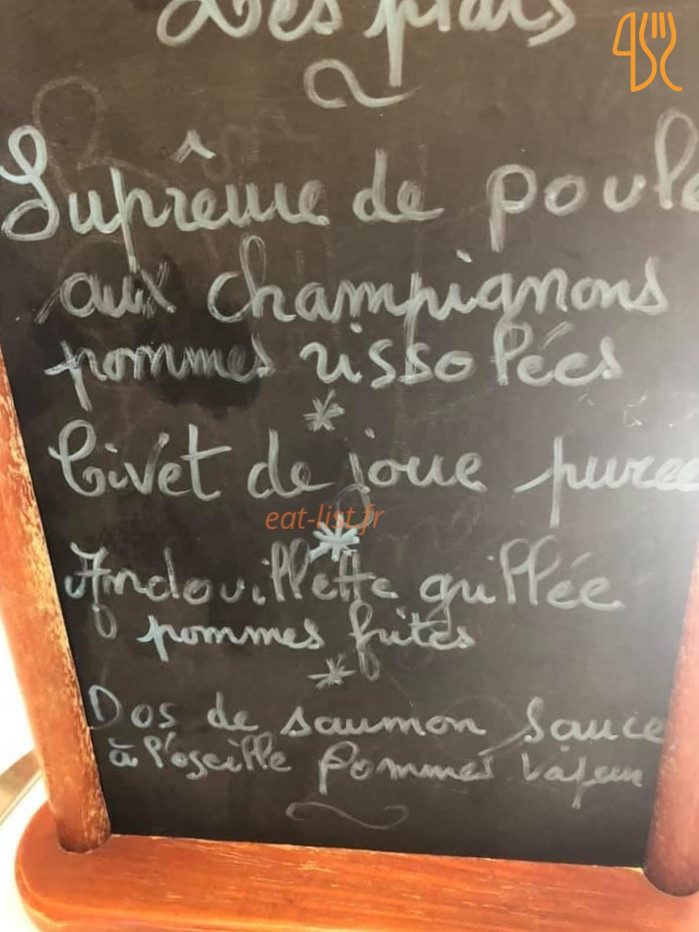 Les plats
Suprême de poule
aux champignons
pommes rissolées
*
Civet de joue purée
eat-list.fr
*
Andouillette grillée
pommes frites
*
Dos de saumon sauce
à l'oseille Pommes vapeur